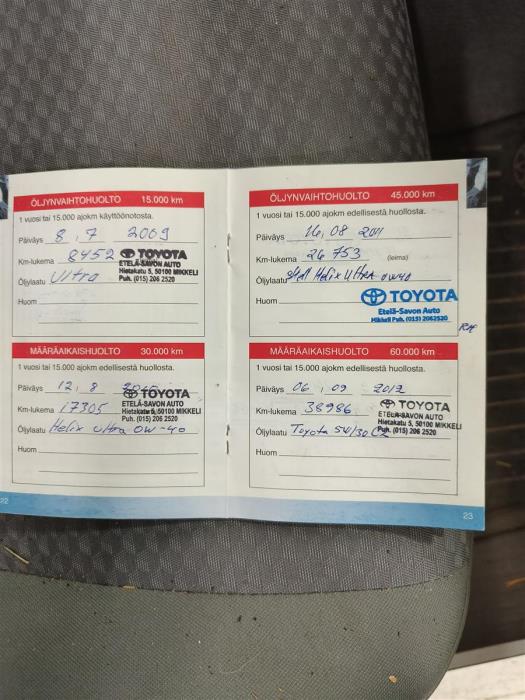 ÖLJYNVAIHTOHUOLTO 15.000 km
1 vuosi tai 15.000 ajokm käyttöönotosta.
Päiväys 8,7 2009
Km-lukema 8452 TOYOTA
ETELÄ-SAVON AUTO
Hietakatu 5, 50100 MIKKELI
Puh. (015) 206 2520
Öljylaatu Ultra
Huom
MÄÄRÄAIKAISHUOLTO 30.000 km
1 vuosi tai 15.000 ajokm edellisestä huollosta.
Päiväys 12,8
TOYOTA
Km-lukema 17305 ETELÄ-SAVON AUTO
Hietakatu 5, 50100 MIKKELI
Puh. (015) 206 2520
Öljylaatu Helix Ultra 0W-40
Huom
22
ÖLJYNVAIHTOHUOLTO 45.000 km
1 vuosi tai 15.000 ajokm edellisestä huollosta.
Päiväys 16,08 2011
Km-lukema 26753 (leima)
Öljylaatu Shell Helix Ultra 0W40
Huom TOYOTA
Etelä-Savon Auto
Mikkeli Puh. (015) 2062520
MÄÄRÄAIKAISHUOLTO 60.000 km
1 vuosi tai 15.000 ajokm edellisestä huollosta.
Päiväys 06,09 2012
Km-lukema 38986 TOYOTA
ETELÄ-SAVON AUTO
Hietakatu 5, 50100 MIKKELI
Puh. (015) 206 2520
Öljylaatu Toyota 5W/30 C2
Huom
23